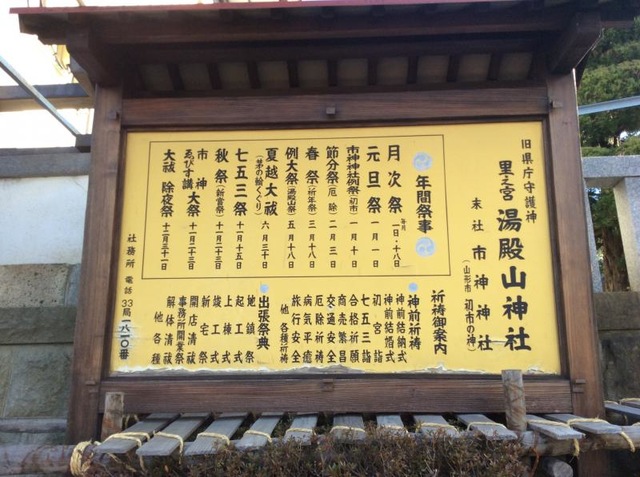 旧県庁守護神
里之宮 湯殿山神社
末社 市神神社
(山形市 初市の神)
年間祭事
月次祭 毎月 一日・十八日
元旦祭 一月一日
市神神社例祭(初市) 一月十日
節分祭(厄除) 二月三日
春祭(祈年祭) 三月十八日
例大祭(湯殿山祭) 五月十八日
夏越大祓(茅の輪くぐり) 六月三十日
七五三祭 十一月十五日
秋祭(新嘗祭) 十一月二十三日
市神大祭
ゑびす講 十二月二十三日
大祓 除夜祭 十二月三十一日
祈祷御案内
神前祈祷
神前結納式
神前結婚式
初宮詣
七五三詣
合格祈願
商売繁昌
交通安全
厄除祈祷
病気平癒
旅行安全
他 各種祈祷
出張祭典
地鎮祭
起工式
上棟式
竣工式
新宅祭
開店清祓
事務所開業祭
解体清祓
他 各種
社務所 電話 33局一八一〇番